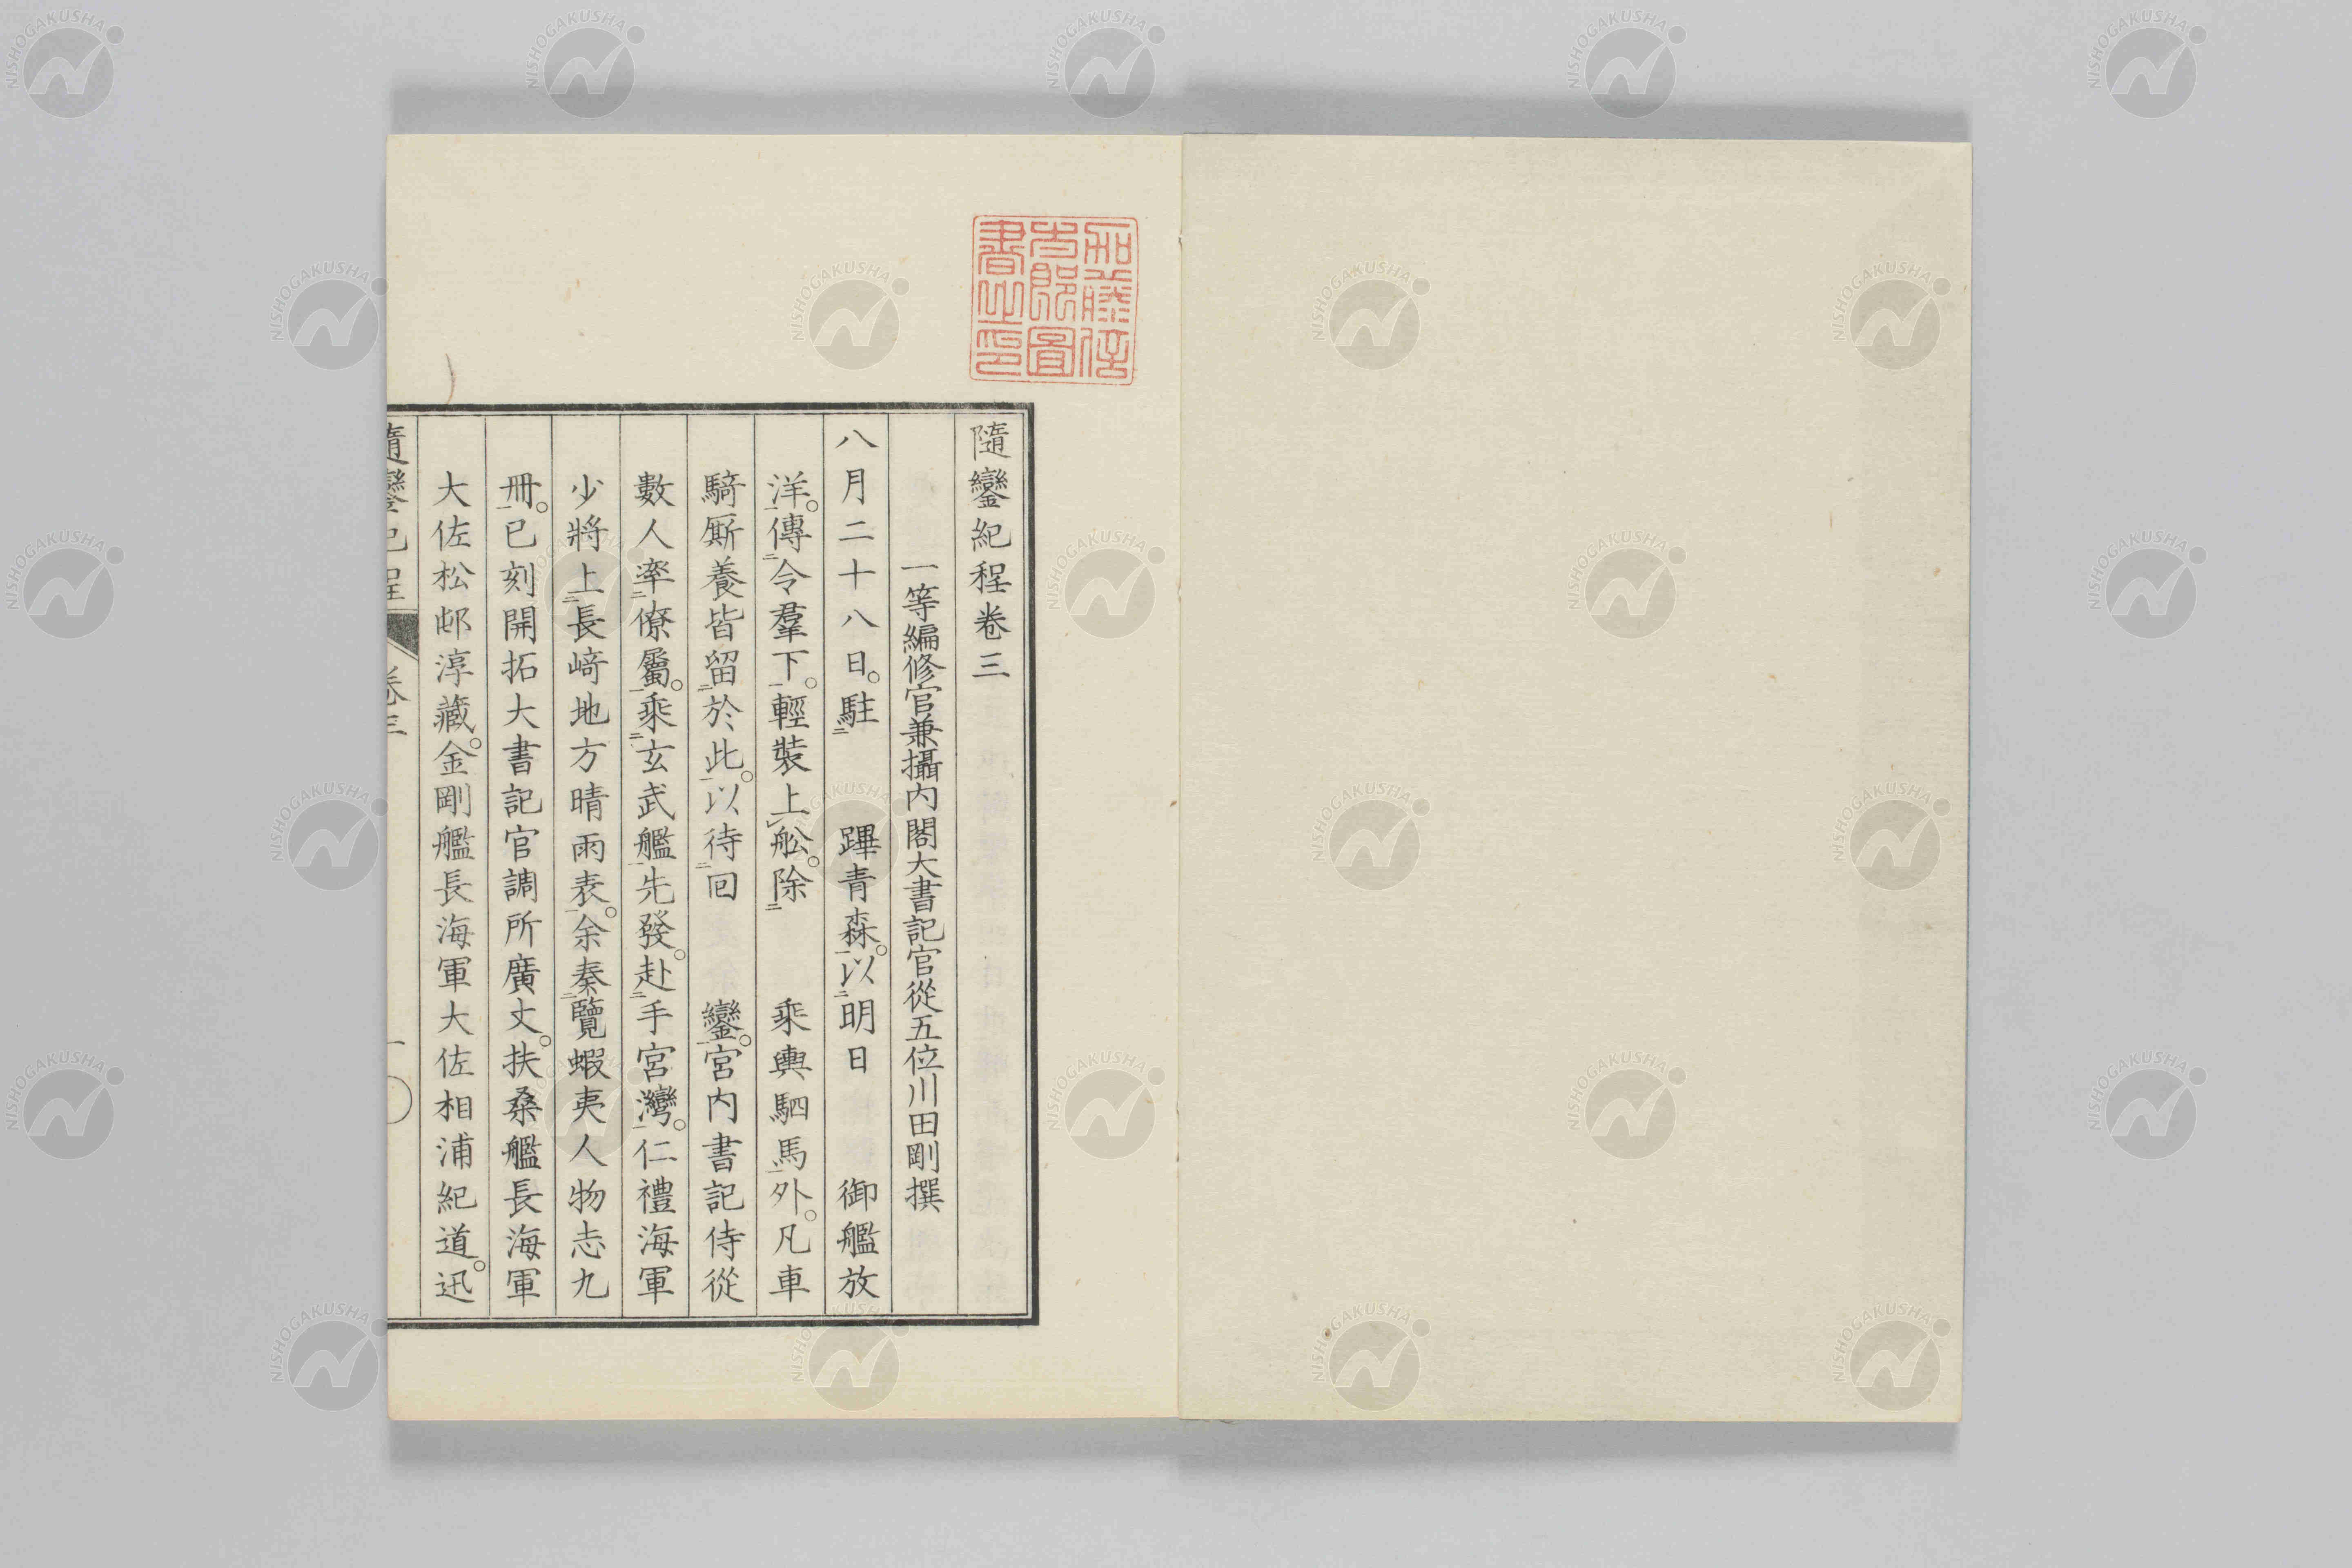 隨鑾紀程卷三
一等編修官兼攝内閣大書記官從五位川田剛撰
八月二十八日。駐二 蹕青森一。以二明日 御艦放
洋一。傳二令羣下一。輕裝上レ舩。除二 乘輿駟馬一外。凡車
騎厮養皆留二於此一。以待二回 鑾一。宮内書記侍從
數人率二僚屬一。乘二玄武艦一先發。赴二手宮灣一。仁禮海軍
少將上二長﨑地方晴雨表一。余奏二覽蝦夷人物志九
冊一。已刻開拓大書記官調所廣丈。扶桑艦長海軍
大佐松邨淳藏。金剛艦長海軍大佐相浦紀道。迅
隨鑾紀程 卷三 一
加藤倍
太郎圖
書之印
NISHOGAKUSHA